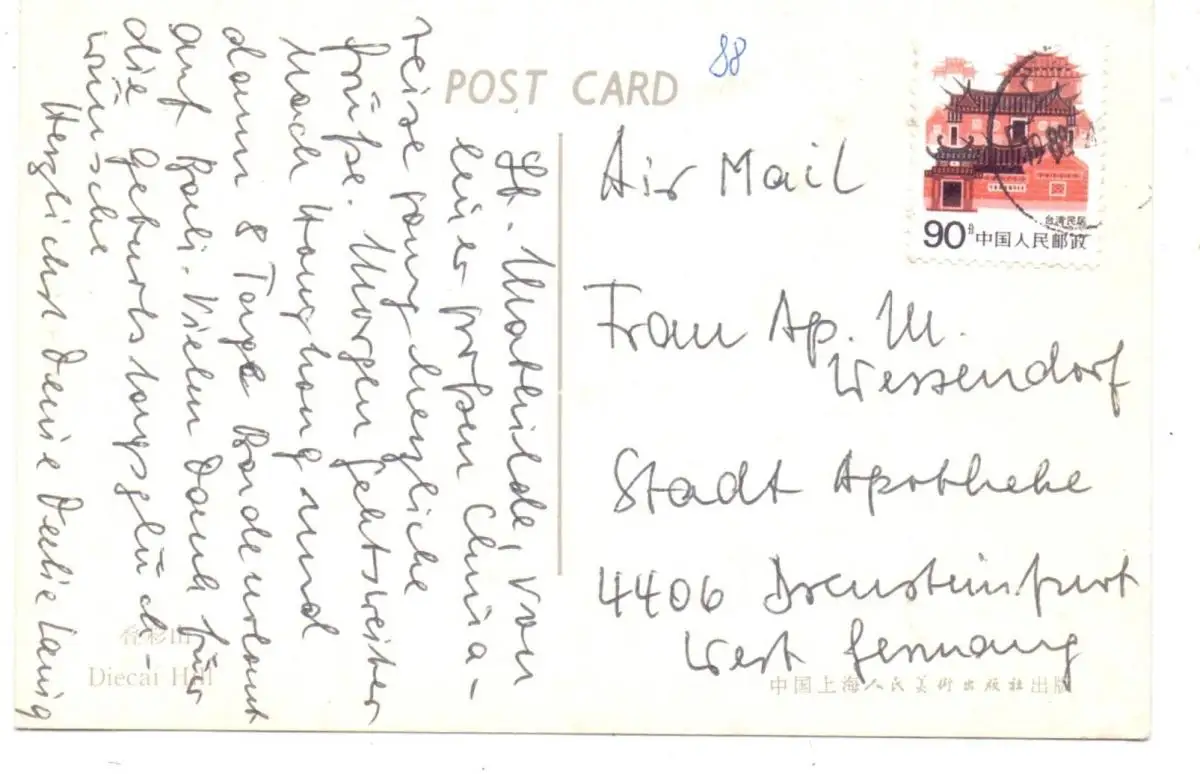 POST CARD
88
Lb. Mathilde, von
einer großen China-
reise ganz herzliche
Grüße. Morgen gehts weiter
nach Hongkong und
dann 8 Tage Badeurlaub
auf Bali. Vielen Dank für
die Geburtstagsglück-
wünsche
Herzlichst Deine
叠彩山
Diecai Hill
Air Mail
台湾民居
90分 中国人民邮政
Frau Ap. M.
Wessendorf
Stadt Apotheke
4406 Drensteinfurt
West Germany
中国上海人民美术出版社出版